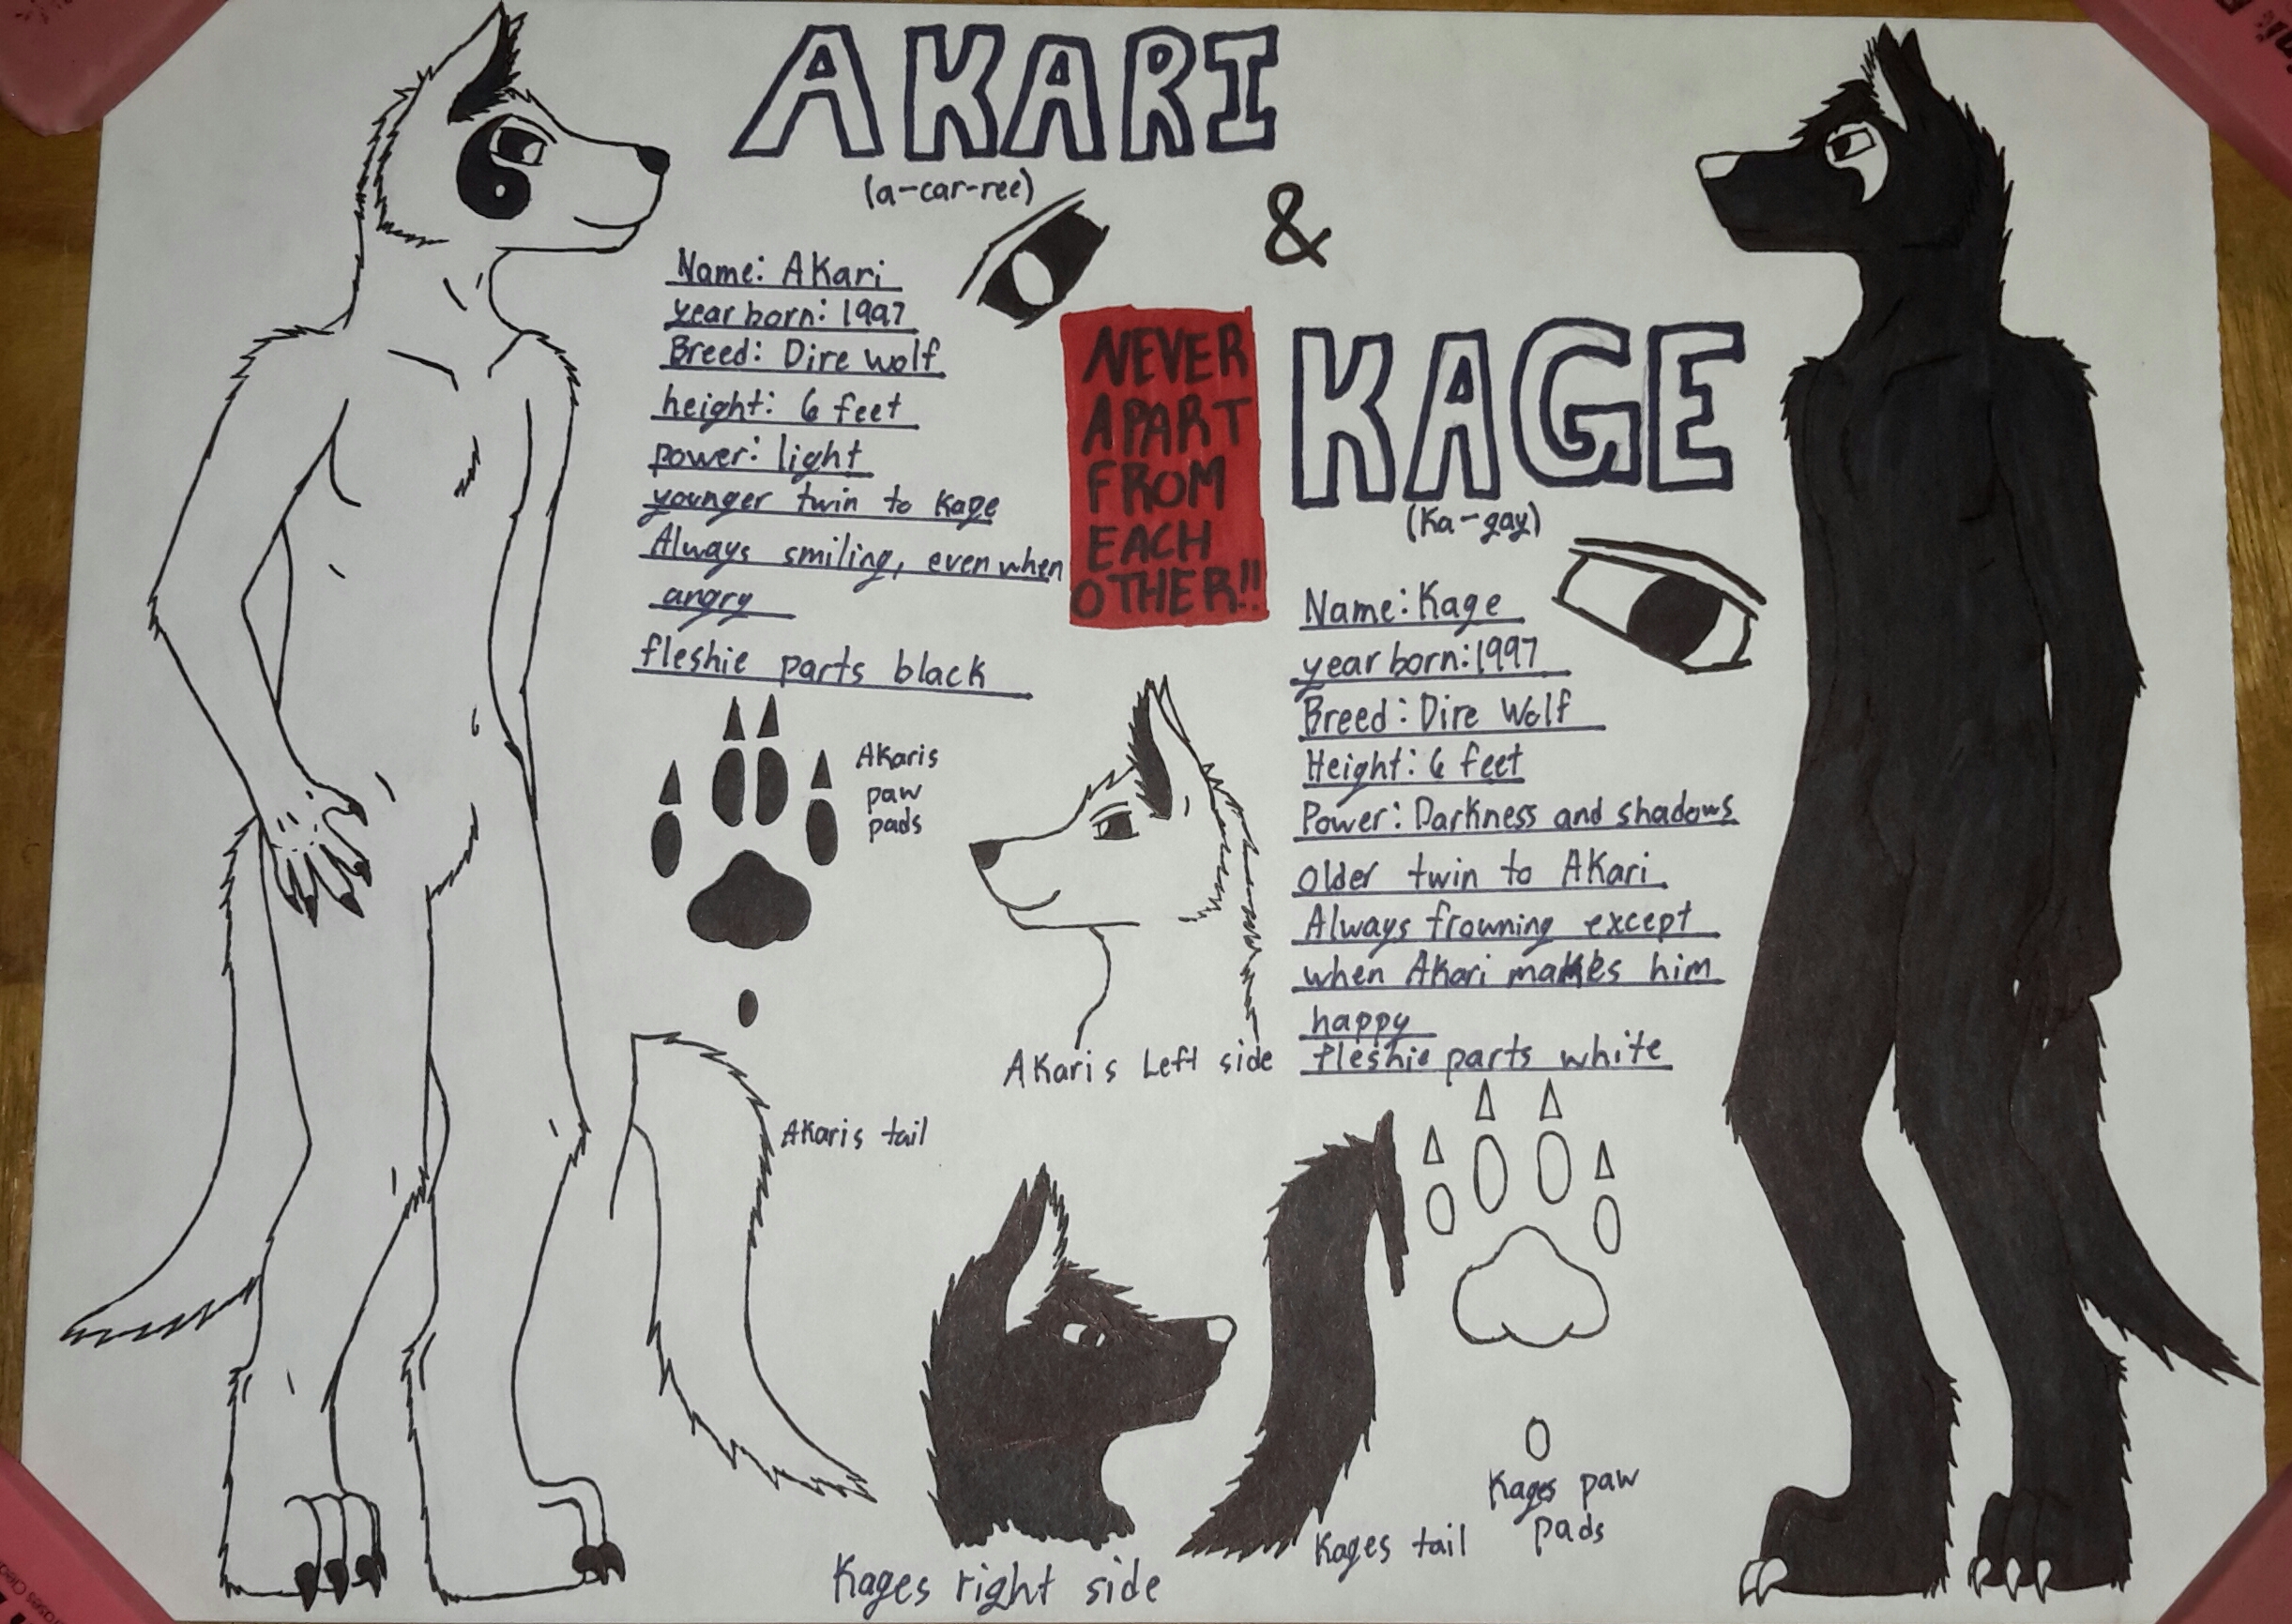 AKARI
(a-car-ree)
&
KAGE
(Ka-gay)
Name: AKari
year born: 1997
Breed: Dire wolf
height: 6 feet
power: light
younger twin to Kage
Always smiling, even when
angry
fleshie parts black
NEVER
APART
FROM
EACH
OTHER!!
Name: Kage
year born: 1997
Breed: Dire Wolf
Height: 6 feet
Power: Darkness and shadows
older twin to AKari
Always frowning except
when AKari makes him
happy
fleshie parts white
AKaris
paw
pads
AKaris Left side
AKaris tail
Kages right side
Kages tail
Kages paw
pads